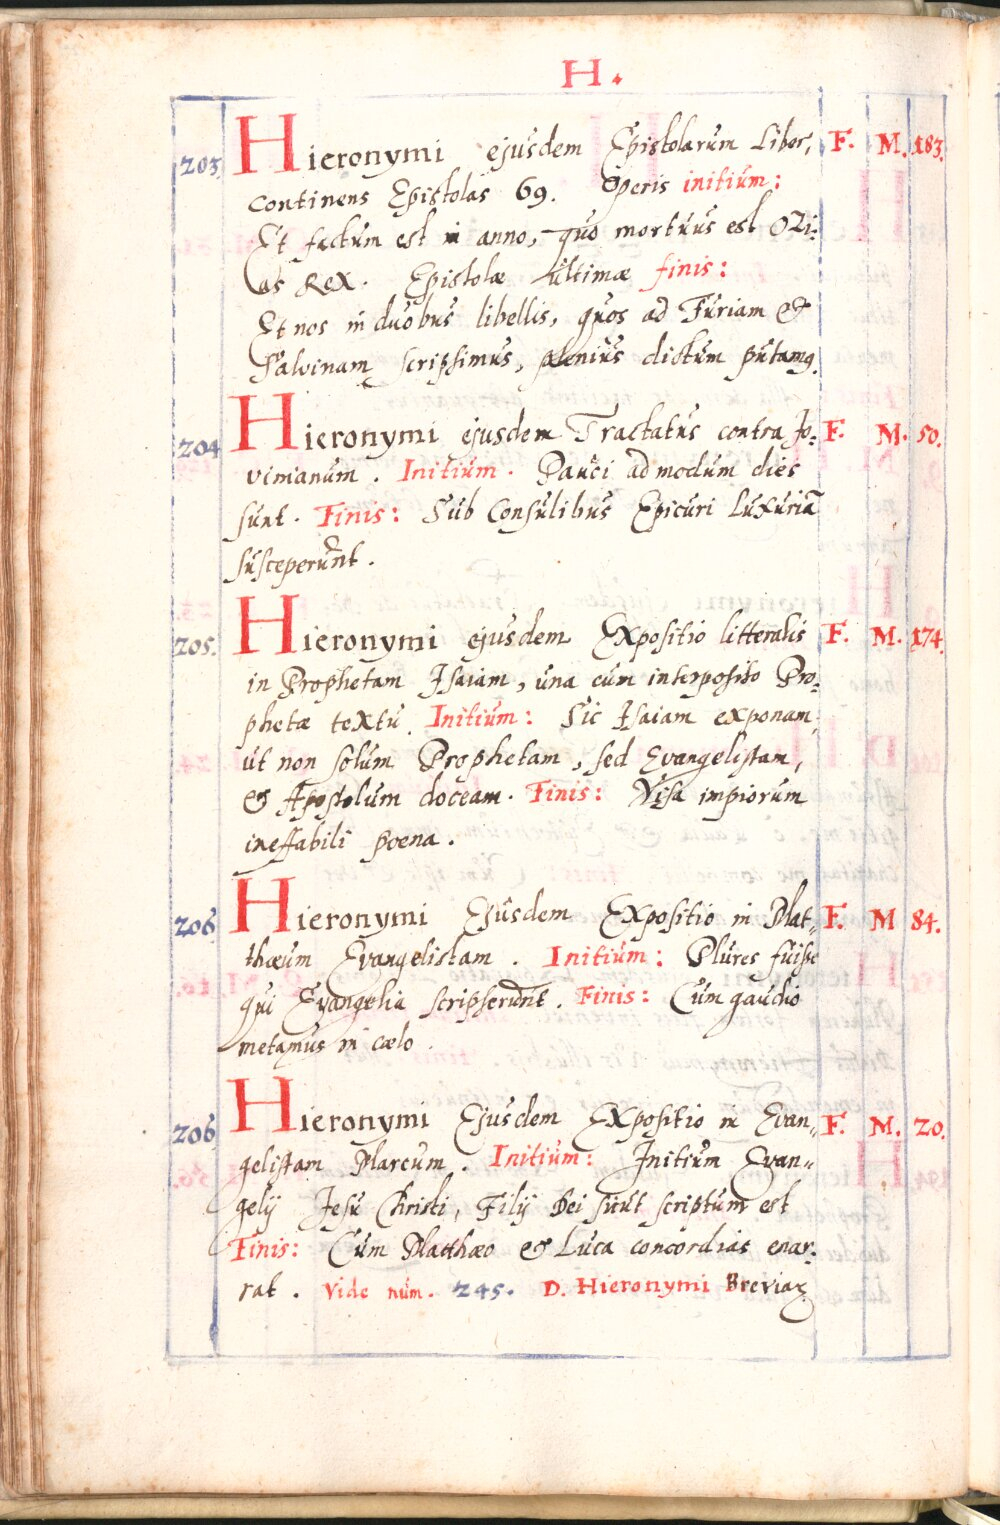 H.
203 Hieronymi ejusdem Epistolarum Liber, F. M. 183.
continens Epistolas 69. Operis initium:
Et factum est in anno, quo mortuus est Ozi-
as Rex. Epistolæ ultimæ finis:
Et nos in duobus libellis, quos ad Furiam &
Salvinam scripsimus, plenius dictum putamq.
204 Hieronymi ejusdem Tractatus contra Jo- F. M. 50.
vimianum. Initium. Pauci admodum dies
sunt. Finis: Sub Consulibus Epicuri Luxuriã
susceperunt.
205. Hieronymi ejusdem Expositio litteralis F. M. 174.
in Prophetam Isaiam, una cum interposito Pro-
phetæ textu. Initium: Sic Isaiam exponam
ut non solum Prophetam, sed Evangelistam,
& Apostolum doceam. Finis: Visa impiorum
ineffabili poena.
206 Hieronymi Ejusdem Expositio in Mat- F. M 84.
thæum Evangelistam. Initium: Plures fuisse
qui Evangelia scripserunt. Finis: Cum gaudio
metamus in cælo.
206 Hieronymi Ejusdem Expositio in Evan- F. M. 20.
gelistam Marcum. Initium: Initium Evan-
gelij Jesu Christi, Filij Dei sicut scriptum est
Finis: Cum Matthæo & Luca concordias enar-
rat. Vide num. 245. D. Hieronymi Breviar.